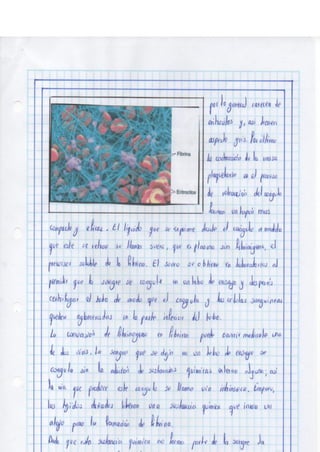 por lo general carecen de
eritrocitos y, así tienen
aspecto gris. Por último
la contracción de la masa
plaquetaria en el proceso
de retracción del coágulo
forman un tapón mas
Fibrina
Eritrocitos
compacto y eficaz. El líquido que se exprime desde el coágulo a medida
que este se retrae se llama suero, que es plasma sin fibrinógeno, el
precursor soluble de la fibrina. El suero se obtiene en laboratorios al
permitir que la sangre se coagule en un tubo de ensayo y después
centrifugar el tubo de modo que el coágulo y las células sanguíneas
queden en la parte inferior del tubo.
La conversión de fibrinógeno en fibrina puede ocurrir mediante una
de dos vías. La sangre que se deja en un tubo de ensayo se
coagula sin la adición de sustancias químicas externo alguno, así
la vía que produce este coágulo se llama vía intrínseca. Empero,
los tejidos dañados liberan una sustancia química que inicia un
atajo para la formación de fibrina.
Dado que esta sustancia química no forma parte de la sangre la